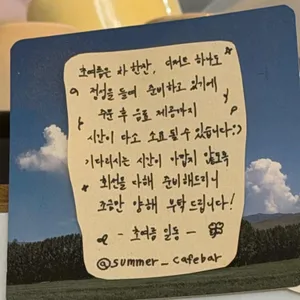 초여름은 차 한잔, 디저트 하나도
정성을 들여 준비하고 있기에
주문 후 음료 제공까지
시간이 다소 소요될 수 있습니다:)
기다리시는 시간이 아깝지 않도록
최선을 다해 준비해드리니
조금만 양해 부탁드립니다!
- 초여름 일동 -
@summer_cafebar